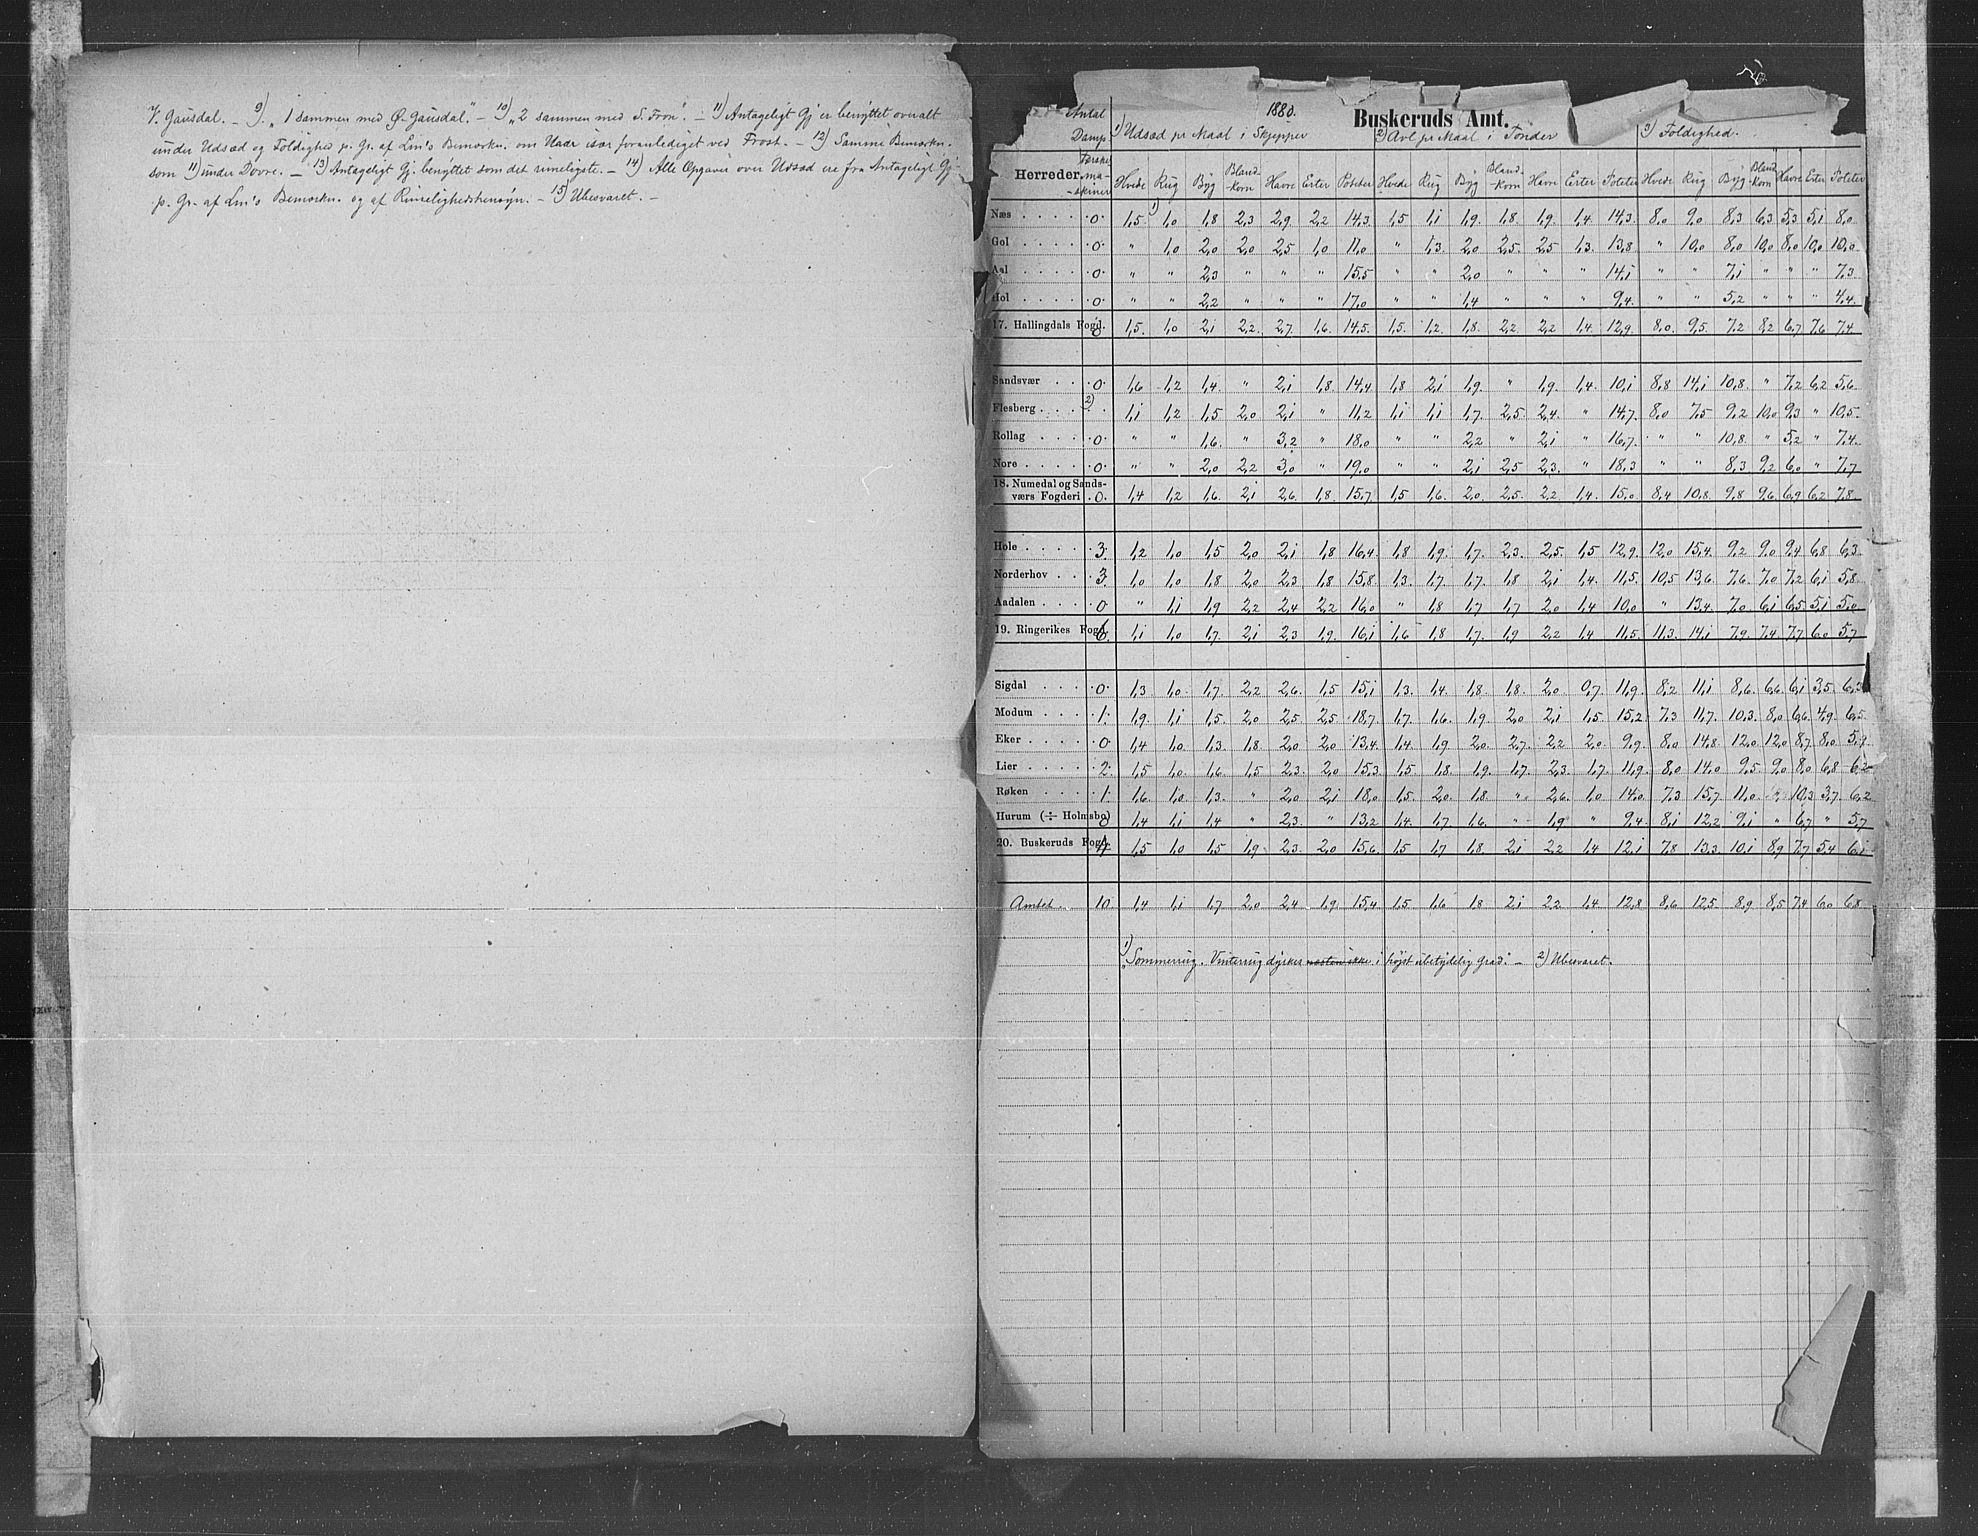 V. Gausdal. — 9) „1 sammen med Ø. Gausdal." — 10) „2 sammen med S. Fron". — 11) Antageligt Gj. er benyttet overalt
under Udsæd og Foldighed p. Gr. af Lm's Bemærkn. om Uaar især foranlediget ved Frost. — 12) Samme Bemærkn.
som 11) under Dovre. — 13) Antageligt Gj. benyttet som det rimeligste. — 14) Alle Opgaver over Udsæd ere fra Antageligt Gj.
p. Gr. af Lm's Bemærkn. og af Rimelighedshensyn. — 15) Ubesvaret. —
1880. Buskeruds Amt.
Antal Damp tærske ma- skiner 1) Udsæd pr Maal i Skjepper 2) Avl pr Maal i Tønder 3) Foldighed.
Herreder. Hvede Rug Byg Bland korn Havre Erter Poteter Hvede Rug Byg Bland korn Havre Erter Poteter Hvede Rug Byg Bland korn Havre Erter Poteter
Næs 0 1,5 1) 1,0 1,8 2,3 2,9 2,2 14,3 1,5 1,1 1,9 1,8 1,9 1,4 14,3 8,0 9,0 8,3 6,3 5,3 5,1 8,0
Gol 0 " 1,0 2,0 2,0 2,5 1,0 11,0 " 1,3 2,0 2,5 2,5 1,3 13,8 " 10,0 8,0 10,0 8,0 10,0 10,0
Aal 0 " " 2,3 " " " 15,5 " " 2,0 " " " 14,1 " " 7,1 " " " 7,3
Hol 0 " " 2,2 " " " 17,0 " " 1,4 " " " 9,4 " " 5,2 " " " 4,4
17. Hallingdals Fogd. 0 1,5 1,0 2,1 2,2 2,7 1,6 14,5 1,5 1,2 1,8 2,2 2,2 1,4 12,9 8,0 9,5 7,2 8,2 6,7 7,6 7,4
Sandsvær 0 1,6 1,2 1,4 " 2,1 1,8 14,4 1,8 2,1 1,9 " 1,9 1,4 10,1 8,8 14,1 10,8 " 7,2 6,2 5,6
Flesberg 2) 1,1 1,2 1,5 2,0 2,1 " 11,2 1,1 1,1 1,7 2,5 2,4 " 14,7 8,0 7,5 9,2 10,0 9,3 " 10,5
Rollag 0 " " 1,6 " 3,2 " 18,0 " " 2,2 " 2,1 " 16,7 " " 10,8 " 5,2 " 7,4
Nore 0 " " 2,0 2,2 3,0 " 19,0 " " 2,1 2,5 2,3 " 18,3 " " 8,3 9,2 6,0 " 7,7
18. Numedal og Sands-
værs Fogderi 0 1,4 1,2 1,6 2,1 2,6 1,8 15,7 1,5 1,6 2,0 2,5 2,2 1,4 15,0 8,4 10,8 9,8 9,6 6,9 6,2 7,8
Hole 3 1,2 1,0 1,5 2,0 2,1 1,8 16,4 1,8 1,9 1,7 2,3 2,5 1,5 12,9 12,0 15,4 9,2 9,0 9,4 6,8 6,3
Norderhov 3 1,0 1,0 1,8 2,0 2,3 1,8 15,8 1,3 1,7 1,7 1,8 2,1 1,4 11,5 10,5 13,6 7,6 7,0 7,2 6,1 5,8
Aadalen 0 " 1,1 1,9 2,2 2,4 2,2 16,0 " 1,8 1,7 1,7 2,0 1,4 10,0 " 13,4 7,0 6,1 6,5 5,1 5,0
19. Ringerikes Fogd. 6 1,1 1,0 1,7 2,1 2,3 1,9 16,1 1,6 1,8 1,7 1,9 2,2 1,4 11,5 11,3 14,1 7,9 7,4 7,7 6,0 5,7
Sigdal 0 1,3 1,0 1,7 2,2 2,6 1,5 15,1 1,3 1,4 1,8 1,8 2,0 0,7 11,9 8,2 11,1 8,6 6,6 6,1 3,5 6,3
Modum 1 1,9 1,1 1,5 2,0 2,5 2,5 18,7 1,7 1,6 1,9 2,0 2,1 1,5 15,2 7,3 11,7 10,3 8,0 6,6 4,9 6,5
Eker 0 1,4 1,0 1,3 1,8 2,0 2,0 13,4 1,4 1,9 2,0 2,7 2,2 2,0 9,9 8,0 14,8 12,0 12,0 8,7 8,0 5,9
Lier 2 1,5 1,0 1,6 1,5 2,3 2,0 15,3 1,5 1,8 1,9 1,7 2,3 1,7 11,9 8,0 14,0 9,5 9,0 8,0 6,8 6,2
Røken 1 1,6 1,0 1,3 " 2,0 2,1 18,0 1,5 2,0 1,8 " 2,6 1,0 14,0 7,3 15,7 11,0 " 10,3 3,7 6,2
Hurum (÷ Holmsbo) 0 1,4 1,1 1,4 " 2,3 " 13,2 1,4 1,7 1,6 " 1,9 " 9,4 8,1 12,2 9,1 " 6,7 " 5,7
20. Buskeruds Fogd. 4 1,5 1,0 1,5 1,9 2,3 2,0 15,6 1,5 1,7 1,8 2,1 2,2 1,4 12,1 7,8 13,3 10,1 8,9 7,7 5,4 6,1
Amtet. 10 1,4 1,1 1,7 2,0 2,4 1,9 15,4 1,5 1,6 1,8 2,1 2,2 1,4 12,8 8,6 12,5 8,9 8,5 7,4 6,0 6,8
1) „Sommerrug. Vinterrug dyrkes næsten ikke i høist ubetydelig Grad." — 2) Ubesvaret.